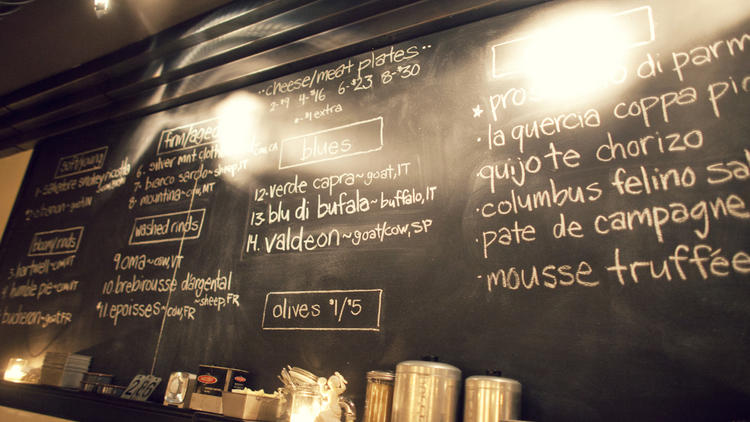 soft/young
1. salvatore smokey ricotta
bloomy rinds
3. hartwell~cow, VT
4. humble pie~cow, VT
bucheron~goat, FR
firm/aged
6. silver mnt clothbound~cow, CA
7. bianco sardo~sheep, IT
8. mountina~cow, MT
washed rinds
9. oma~cow, VT
10. brebirousse d'argental
~sheep, FR
*11. epoisses~cow, FR
..cheese/meat plates..
2-$9 4-$16 6-$23 8-$30
$1 extra
blues
12. verde capra~goat, IT
13. blu di bufala~buffalo, IT
14. valdeon~goat/cow, SP
olives $1/$5
di parm
• la quercia coppa pic
• quijote chorizo
• columbus felino sal
• pate de campagne
• mousse truffée